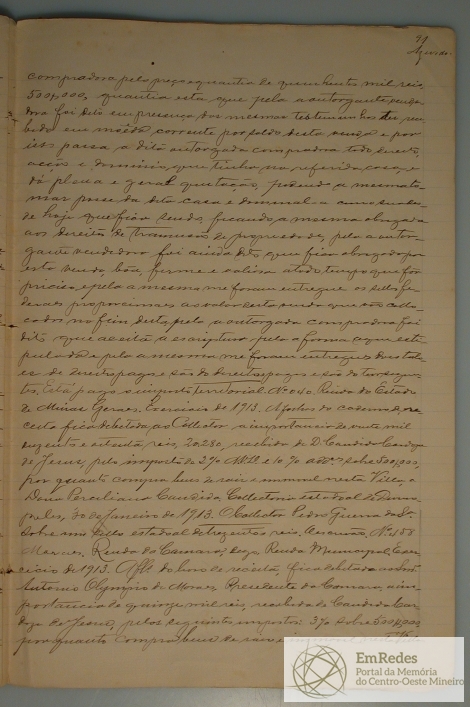 compradora pelo preço e quantia de quinhentos mil reis,
500$000, quantia esta que pela a outorgante vende
dora foi dito em presença das mesmas testemunhas ter re
bido em moéda corrente por saldo desta venda e por
isso passa a dita outorgada compradora todo direito,
acção e dominio, que tinha na referida casa, e
dá plena e geral quitação, podendo a mesma to-
mar posse da dita casa e
de hoje que fica sendo, ficando a mesma obrigada
aos direitos de transmissão de propriedade, pela a outor-
gante vendedora foi ainda dito que fica obrigada por
esta venda, boa, firme e valiosa a todo tempo que for
preciso, e pela a mesma me foram entregue os sellos fe
deraes proporcionaes ao valor desta venda que vão collo
cados no fim desta, pela a outorgada compradora foi
dito que aceita a escriptura pela a forma em que está es
pulada e pela a mesma me foram entregues os tal-
ões de direitos pagos e são do
tes. Está pago o imposto territorial Nº 040. Renda do Estado
de Minas Geraes. Exercicio de 1913. A folhas do caderno de re
ceita fica debitada ao Collector a importancia de vinte mil
duzentos e oitenta reis, 20280, recebida de D. Candida Cardoza
de Jesus, pelo imposto de
por quanto comprou bens de raiz e immovel nesta Villa, a
Dona Perciliana Candida, Collectoria estadoal de
polis, 30 de Janeiro de 1913. O Collector Pedro Guerra
Sobre um sello estadoal de trezentos reis,
Renda da Camara, digo, Renda Municipal, Exer
cicio de 1913. A fls do livro de receita, fica debitada ao Snr
Antonio Olympio de Moraes, Presidente da Camara, a im
portancia de quinze mil reis, recebida de Candida Car
doza de Jesus, pelos seguintes impostos 3% sobre 500$000
por quanto comprou bens de raiz e immovel nesta Villa
EmRedes
Portal da Memória
do Centro-Oeste Mineiro